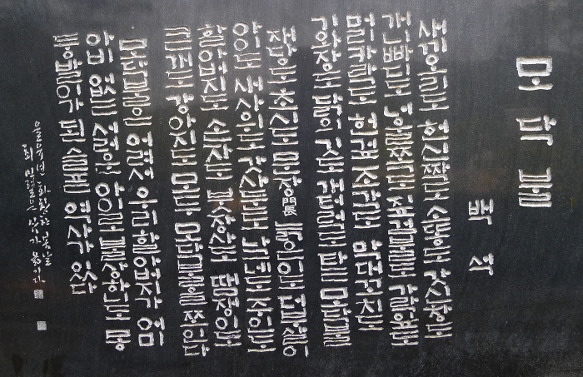 모닥불
백석
새끼오리도 헌신짝도 소똥도 갓신창도
개니빠디도 너울쪽도 짚검불도 가락잎도
머리카락도 헌겊조각도 막대꼬치도
기와장도 닭의 깃도 개터럭도 타는 모닥불
재당도 초시도 문장門長 늙은이도 더부살이
아이도 새사위도 갓사둔도 나그네도 주인도
할아버지도 손자도 붓장사도 땜쟁이도
큰개도 강아지도 모두 모닥불을 쪼인다
모닥불은 어려서 우리 할아버지가 어미
아비 없는 서러운 아이로 불상하니도 몽
둥발이가 된 슬픈 역사가 있다